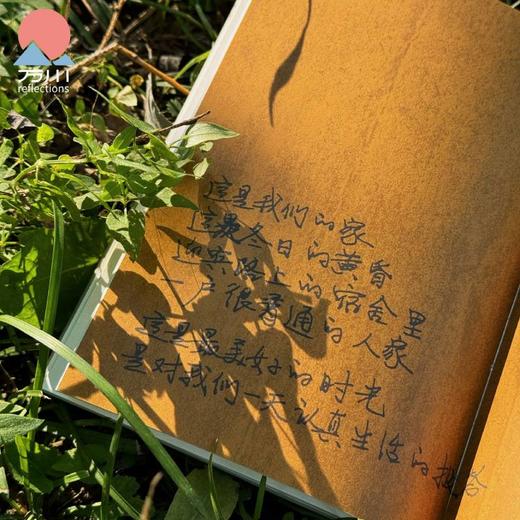 reflections
这是我们的家
这是冬日的黄昏
迎宾路上的宿舍里
一户很普通的人家
这是最美好的时光
是对我们一天认真生活的报答